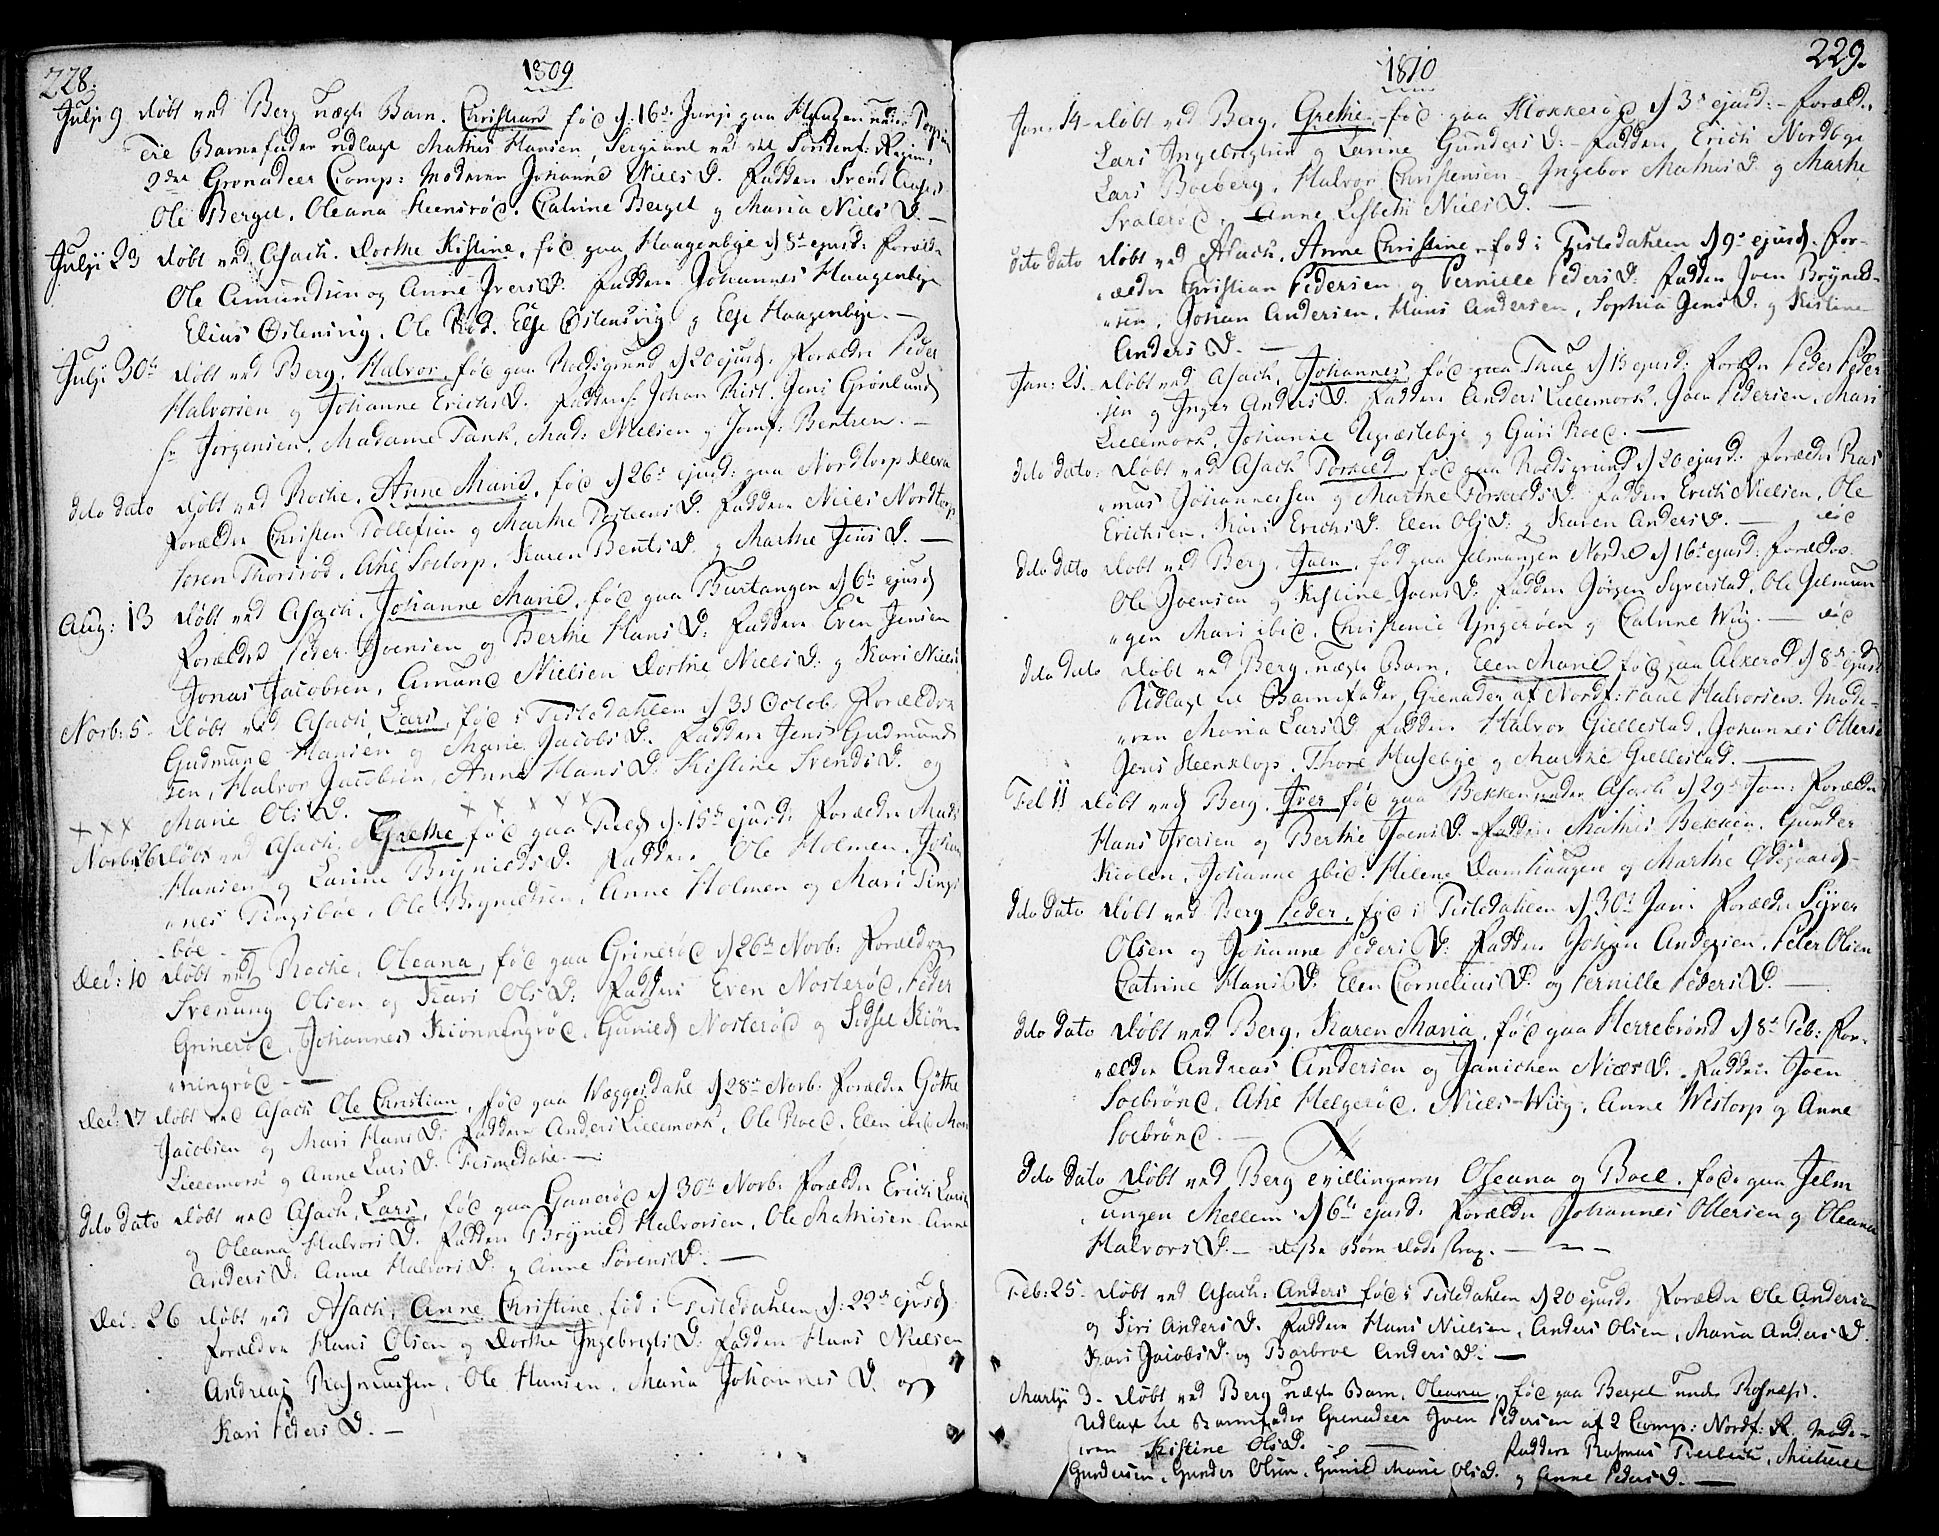 228.
1809
Julji 9 døbt ved Berg uægte Barn. Christians fød d. 16de Junji paa Haugen under
Barnefader udlagt Mathis Hansen, Sergiant ved det Søndenf: Regim:
2den Grenadeer Comp: Moderen Johanne Niels D. Faddere Svend
Ole Berget. Oleana Steensrød. Catrine Berget og Maria Niels D. —
Julji 23 døbt ved Asach. Dorthe Kistine, fød paa Haagenbye d 8de ejusd: Foræld:
Ole Amundsen og Anne Ivers D. Faddere Johannes Haagenbye
Elias Østensvig. Ole Røed. Else Østensvig og Else Haagenbye. —
Julji 30te døbt ved Berg. Halvor, fød paa Rødsgrund d 20 ejusd. Forældre Peder
Halvorsen og Johanne Erichs D. Faddere Hr. Johan Rist. Jens Grønlund
Hr Jørgensen. Madame Tank. Mad: Nielsen og Jomf: Bentzen. —
dito dato døbt ved Rocke. Anne Marie, fød d 26de ejusd: paa Nordtorp
Forældre Christen Tollefsen og Marthe Torstens D. Faddere Niels Nordtorp
Søren Thorsrød. Ahe Soetorp. Karen Bents D. og Marthe Jens D. —
Aug: 13 døbt ved Asach. Johanne Marie, fød paa Burtangen d 6te ejusd
Forældre Peder Joensen og Berthe Hans D: Faddere Even Jensen
Jonas Jacobsen, Amund Nielsen Dorthe Niels D: og Kari Niels
Novb: 5. døbt ved Asach, Lars, fød i Tistedahlen d 31 Octob. Forældre
Gudmund Hansen og Marie Jacobs D. Faddere Jens Gudmund
sen, Halvor Jacobsen, Anne Hans D: Kistine Svends D. og
Marie Ols D.
× × × × × × × ×
Novb: 26 døbt ved Asach. Grethe fød paa d. 15de ejusd. Forældre Mads
Hansen og Larine Brynilds D. Faddere Ole Holmen. Johan
nes Tingsbøe, Ole Brynildsen, Anne Holmen og Mari Tings
bøe.
Dec: 10 døbt ved Rocke, Oleana, fød paa Grinerød d 26de Novb: Forældre
Svenung Olsen og Kari Ols D: Faddere Even Nosterød, Peder
Grinerød, Johannes Kiønningrød, Gunild Nosterød og Sidsel Kiøn-
ningrød. —
Dec: 17 døbt ved Asach Ole Christian, fød paa Væggesdahl d 28de Novb: Forældre Göthe
Jacobsen og Mari Hans D: Faddere Anders Lillemork, Ole Roed. Elen ibid. Mari
Lillemork og Anne Lars D. Tistedahl. —
dito dato døbt ved Asach. Lars, fød paa Ganerød d 30te Novb: Forældre Erich Larsen
og Oleana Halvors D. Faddere Brynild Halvorsen, Ole Mathisen. Anne
Anders D. Anne Halvors D. og Anne Sørens D. —
Dec: 26 døbt ved Asach. Anne Christine, fød i Tistedahlen, d. 22de ejusd
Forældre Hans Olsen og Dorthe Ingebrigts D. Faddere Hans Nielsen
Andreas Rasmussen, Ole Hansen, Maria Johannes D. og
Kari Peders D. —
1810
229.
Jan: 14 døbt ved Berg. Grethe. fød paa Klokkerød d 3de ejusd: — Forældre
Lars Ingebrigtsen og Larine Gunders D. — Faddere Erich Nordbye
Lars Boeberg, Halvor Christensen Ingebor Mathis D og Marthe
Svalerød og Anne Lisbeth Niels D. —
dito dato døbt ved Asach, Anne Christine, fød i Tistedahlen d 9de ejusd. For-
ældre Christian Pedersen og Pernille Peders D: Faddere Joen Brynild-
sen, Johan Andersen, Hans Andersen, Sophia Jens D. og Kistine
Anders D. —
Jan: 21. døbt ved Asach, Johannes, fød paa Thue d 13 ejusd: Forældre Peder Peder
sen og Inger Anders D. Faddere Anders Lillemork, Joen Pedersen, Mari
Lillemork, Johanne Ugræstebye og Guri Roed. —
dito dato: døbt ved Asach Torkild, fød paa Rødsgrund d 20 ejusd. Forældre Ras
mus Johannessen og Marthe Torkilds D. Faddere Erich Nielsen, Ole
Erichsen, Kari Erichs D. Elen Ols D. og Karen Anders D. —
dito dato døbt ved Berg, Joen, fød paa Jelmungen Nordre d 16de ejusd: Forældre
Ole Joensen og Kistine Joens D. Faddere Jørgen Syverstad, Ole Jelmun
gen Mari ibid. Christense Yngerøen og Catrine Wiig. —
dito dato døbt ved Berg uægte Barn, Elen Marie fød paa Alkerød d 8de ejusd
Udlagt til Barnefader Grenader af Nordf: Paul Halvorsen. Mode-
ren Maria Lars D Faddere Halvor Giellestad, Johannes Ottersen
Jens Steenklop, Thore Husebye og Marthe Giellestad. —
Feb 11 døbt ved Berg. Iver fød paa Bekken under Asach d 29de Jan: Forældre
Hans Iversen og Berthe Joens D. Faddere Mathis Bekken, Gunder
Kiølen, Johanne ibid: Helene Damhaugen og Marthe Ødegaard —
dito dato døbt ved Berg Peder, fød i Tistedahlen d 30te Jan: Forældre Syver
Olsen og Johanne Peders D: Faddere Johan Andersen, Peter Olsen
Catrine Hans D. Elen Cornelius D. og Pernille Peders D. —
dito dato døbt ved Berg, Karen Maria, fød paa Herrebrønd d 8de Feb: For-
ældre Andreas Andersen og Janichen Niels D. Faddere Joen
Soebrønd, Ahe Helgerød, Niels Wiig, Anne Westorp og Anne
Soebrønd. —
dito dato døbt ved Berg tvillingerne Oleana og Boel, fød paa Jelm
ungen Mellem d 6te ejusd. Forældre Johannes Ottersen og Oleana
Halvors D. — disse Børn døde strax. —
Feb: 25. døbt ved Asach: Anders fød i Tistedahlen d 20 ejusd. Forældre Ole Andersen
og Siri Anders D. Faddere Hans Nielsen, Anders Olsen, Maria Anders D.
Kari Jacobs D. og Barbroe Anders D: —
Martji 3. døbt ved Berg uægte Barn, Oleana, fød paa Berget under Rosnæss.
Udlagt til Barnefader Grenadeer Joen Pedersen af 2 Comp: Nordf: R. Mode-
ren Kistine Ols D. — Faddere Rasmus Michael
Gundersen, Gunder Olsen, Gunild Marie Ols D. og Anne Peders D. —